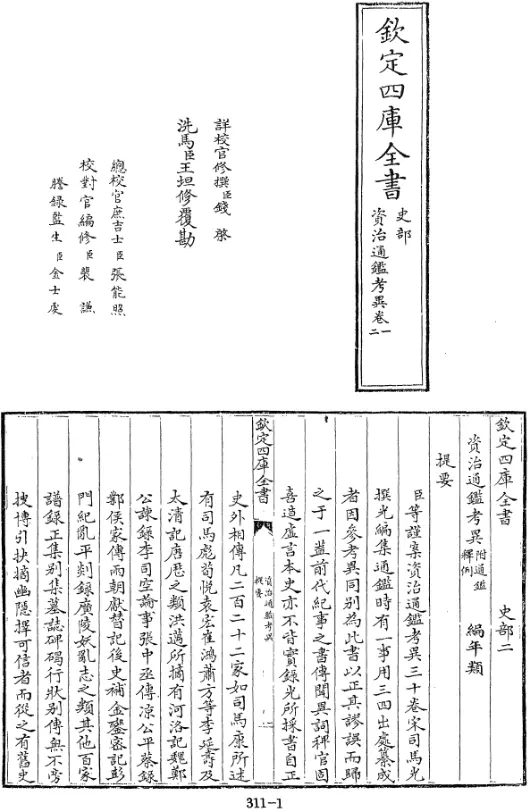 欽定四庫全書
史部
資治通鑑考異卷一
二
詳校官修撰臣錢棨
洗馬臣王坦修覆勘
總校官庶吉士臣張能照
校對官編修臣裴謙
謄錄監生臣金士虔
欽定四庫全書
史部二
資治通鑑考異附通鑑釋例
編年類
提要
臣等謹案資治通鑑考異三十卷宋司馬光
撰光編集通鑑時有一事用三四出處纂成
者因參考異同別為此書以正其謬誤而歸
之于一蓋前代紀事之書傳聞異詞稗官固
喜造虛言本史亦不皆實錄光所採者自正
欽定四庫全書
資治通鑑考異
提要
一
史外相傳凡二百二十二家如司馬康所述
有司馬彪荀悅袁宏崔鴻蕭方等李延壽及
太清記唐歷之類洪邁所摘有河洛記魏鄭
公諫錄李司空論事張中丞傳涼公平蔡錄
鄴侯家傳兩朝獻替記後史補金鑾密記彭
門紀亂平剡錄廣陵妖亂志之類其他百家
譜錄正集別集墓誌碑碣行狀別傳無不旁
搜博引抉摘幽隱擇可信者而從之有舊史
311-1